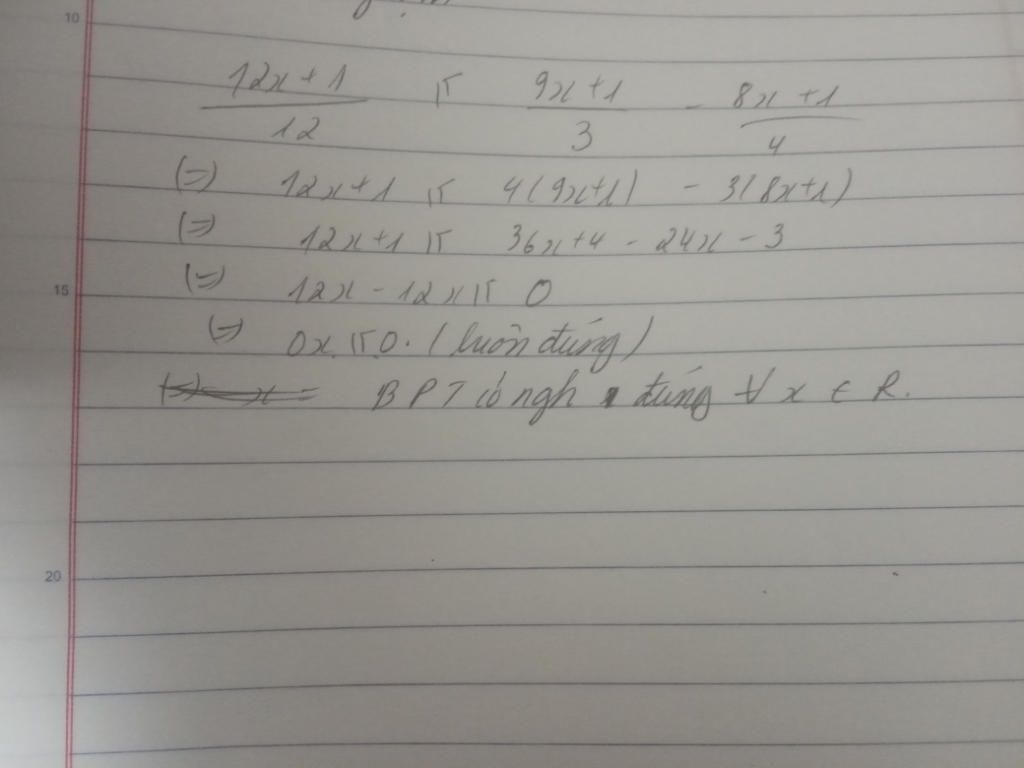 10
12x+1 ≤ 9x+1 - 8x+1
12 3 4
(=) 12x+1 ≤ 4(9x+1) - 3(8x+1)
(=) 12x+1 ≤ 36x+4 - 24x - 3
15 (=) 12x - 12x ≤ 0
(=) 0x ≤ 0. (luôn đúng)
BPT có ngh đúng ∀ x ∈ R.
20